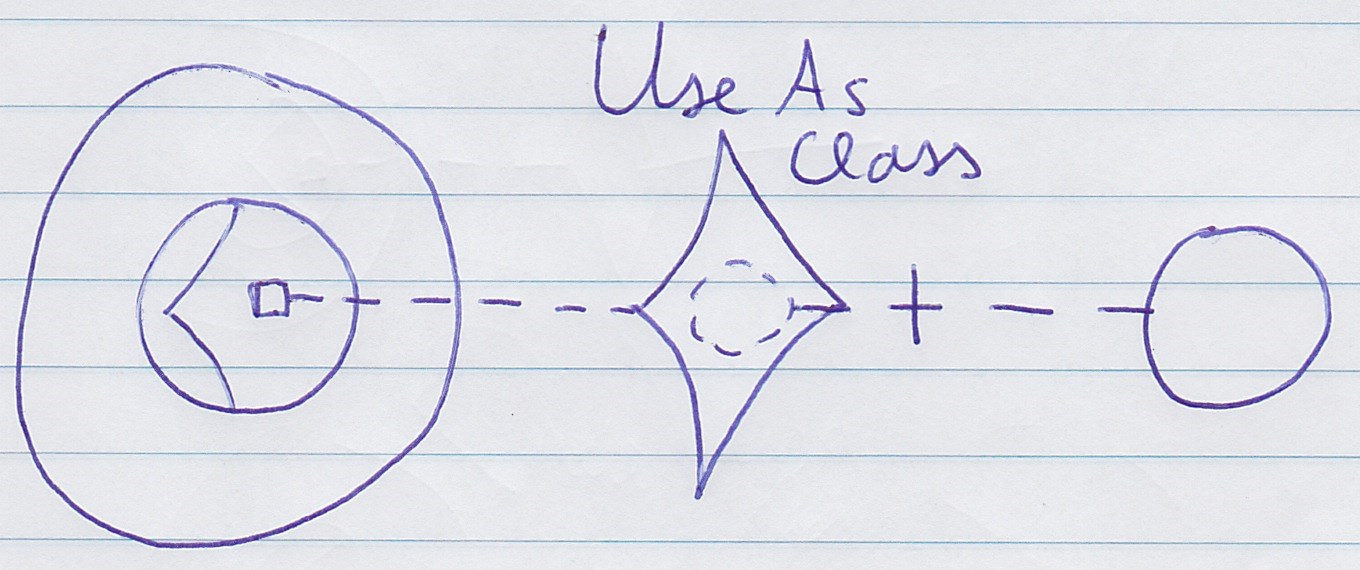 Use As
Class